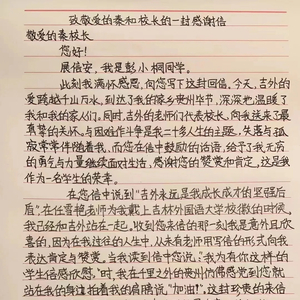 致敬爱的秦和校长的一封感谢信
敬爱的秦校长
您好！
展信安，我是彭小桐同学。
此刻我满怀感恩，向您写下这封回信，今天，吉外的
爱跨越千山万水，到达了我的家乡贵州毕节，深深地温暖了
我和我的家人们。同时，吉外的老师们代表校长，向我送来了最
真挚的关怀。与困难作斗争是我二十多人生的主题，失落与孤
寂常常伴随着我，而您在信中鼓励的话语，给予了我无穷
的勇气与力量继续面对生活，感谢您的赞赏和肯定，这是我
作为一名学生的荣幸。
在您信中说到“吉外永远是我成长成才的坚强后
盾”。在任雪艳老师为我戴上吉林外国语大学校徽的时候，
我已经和吉外站在一起，收到您来信的那一刻我是意外且欣
喜的，因为在我过往的人生中，从未有老师用写信的形式向我
表达肯定与赞赏，当我读到信中您说：“我为有你这样的
学生倍感欣慰。”时，我在千里之外的贵州仿佛感觉到您就
站在我的身边拍着我的肩膀说：“加油！”，这封珍贵的来信